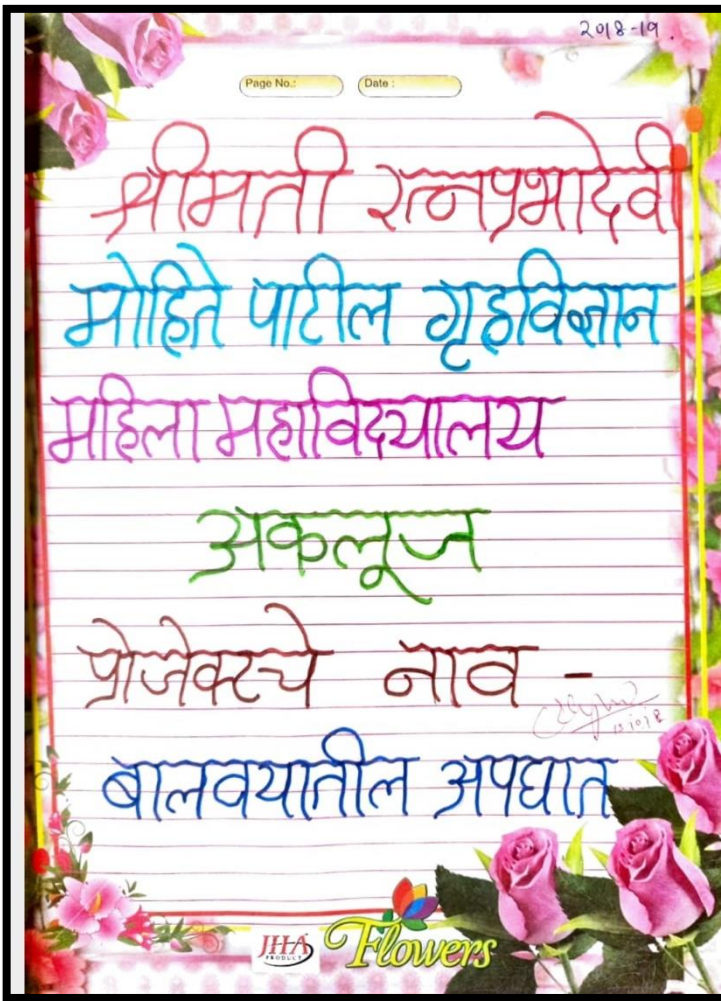 2018-19.
Page No.: Date :
श्रीमती रत्नप्रभादेवी
मोहिते पाटील गृहविज्ञान
महिला महाविद्यालय
अकलूज
प्रोजेक्टचे नाव -
बालवयातील अपघात
JHA
PRODUCT
Flowers